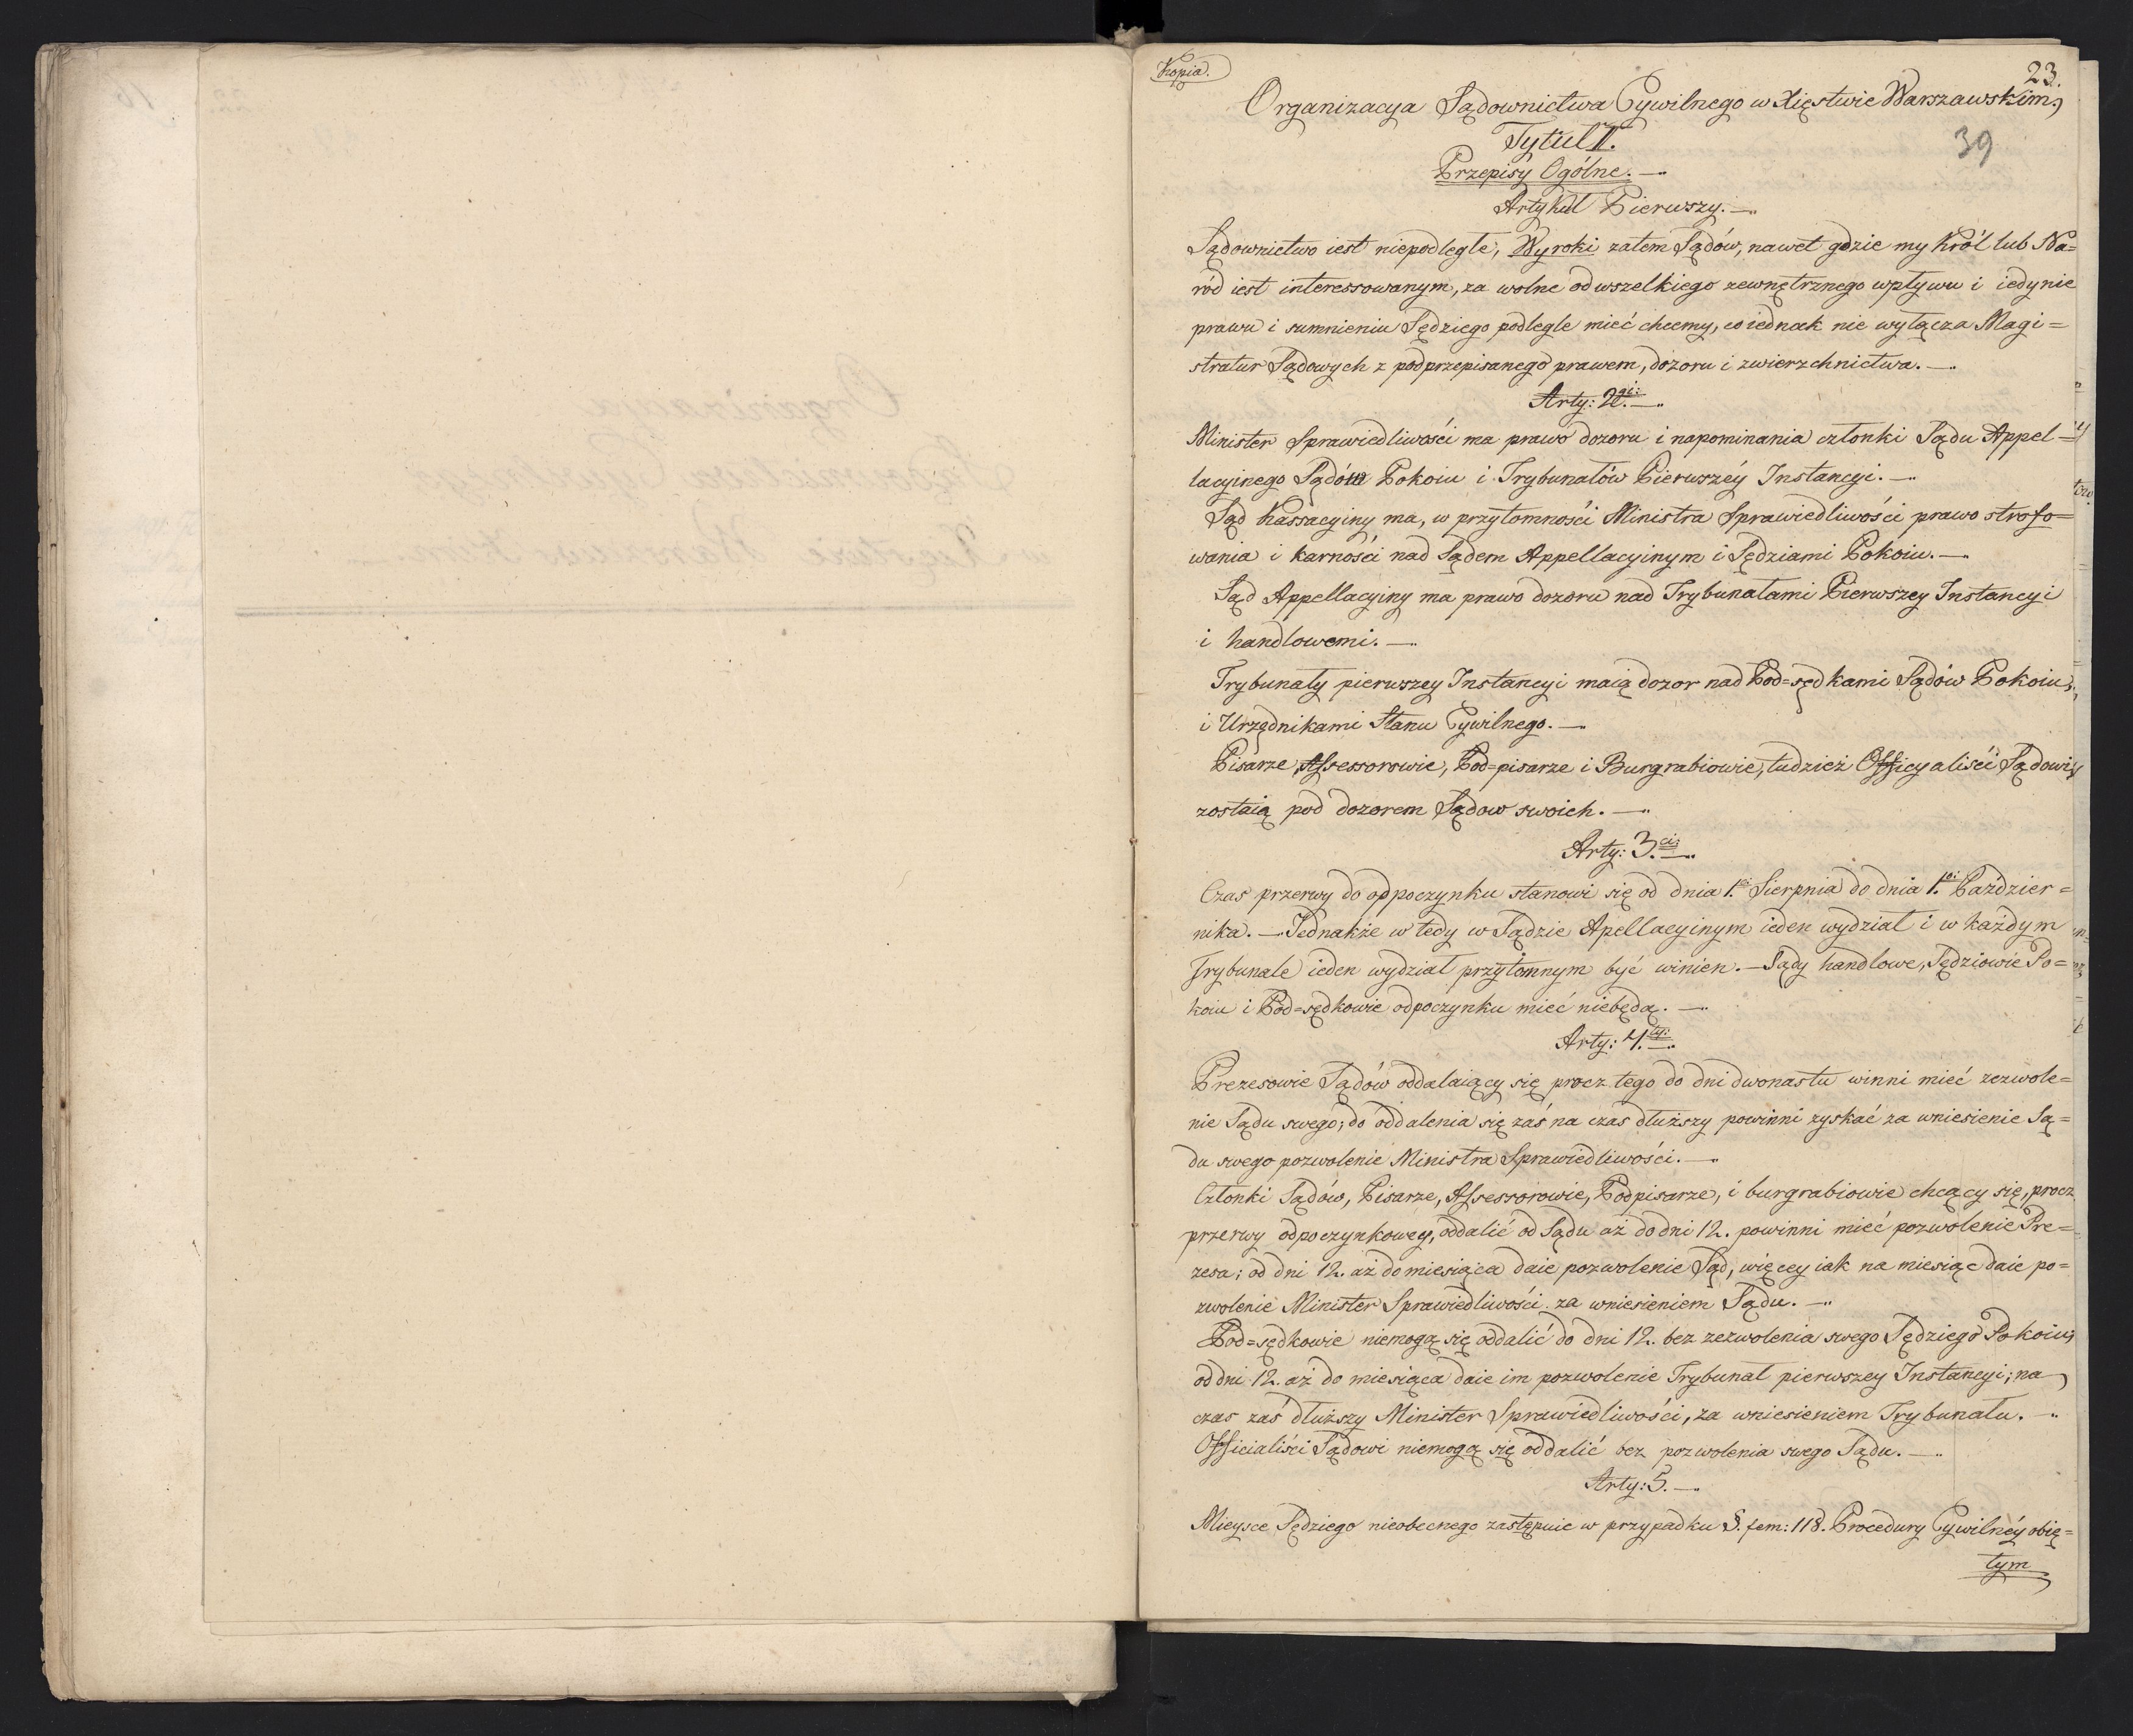 Kopia.
23.
Organizacya Sądownictwa Cywilnego w Xięstwie Warszawskim,
39
Tytuł I.
Przepisy Ogólne.—
Artykuł Pierwszy.—
Sądownictwo iest niepodległe, Wyroki zatem Sądów, nawet gdzie my Król lub Na=
ród iest interessowanym, za wolne od wszelkiego zewnętrznego wpływu i iedynie
prawu i sumnieniu Sędziego podległe mieć chcemy, co iednak nie wyłącza Magi=
stratur Sądowych z pod przepisanego prawem, dozoru i zwierzchnictwa.—
Arty: 2gi:—
Minister Sprawiedliwości ma prawo dozoru i napominania członki Sądu Appel=
lacyinego Sądów Pokoiu i Trybunałów Pierwszéy Instancyi.—
Sąd Kassacyiny ma, w przytomności Ministra Sprawiedliwości prawo strofo=
wania i karności nad Sądem Appellacyinym i Sędziami Pokoiu.—
Sąd Appellacyiny ma prawo dozoru nad Trybunałami Pierwszey Instancyi
i handlowemi.—
Trybunały pierwszey Instancyi maią dozor nad Pod=sędkami Sądów Pokoiu,
i Urzędnikami Stanu Cywilnego.—
Pisarze, Assessorowie, Pod=pisarze i Burgrabiowie, tudzież Officyaliści Sądowi,
zostaią pod dozorem Sądow swoich.—
Arty: 3.ci:—
Czas przerwy do odpoczynku stanowi się od dnia 1. Sierpnia do dnia 1. Paździer=
nika.— Jednakże w tedy w Sądzie Apellacyinym ieden wydział i w każdym
Trybunale ieden wydział przytomnym być winien.— Sądy handlowe, Sędziowie Po=
koiu i Pod=sędkowie odpoczynku mieć niebędą.—
Arty: 4.ty:—
Prezesowie Sądów oddalaiący się procz tego do dni dwonastu winni mieć zezwole=
nie Sądu swego; do oddalenia się zaś na czas dłuższy powinni zyskać za wniesienie Są=
du swego pozwolenie Ministra Sprawiedliwości.—
Członki Sądów, Pisarze, Assessorowie, Podpisarze, i burgrabiowie chcący się, procz
przerwy odpoczynkowey, oddalić od Sądu aż do dni 12. powinni mieć pozwolenie Pre=
zesa; od dni 12. aż do miesiąca daie pozwolenie Sąd, więcey iak na miesiąc daie po=
zwolenie Minister Sprawiedliwości za wniesieniem Sądu.—
Pod=sędkowie niemogą się oddalić do dni 12. bez zezwolenia swego Sędziego Pokoiu;
od dni 12. aż do miesiąca daie im pozwolenie Trybunał pierwszey Instancyi; na
czas zaś dłuższy Minister Sprawiedliwości, za wniesieniem Trybunału.—
Officialiści Sądowi niemogą się oddalić bez pozwolenia swego Sądu.—
Arty: 5.—
Mieysce Sędziego nieobecnego zastępuie w przypadku §. fem: 118. Procedury Cywilnéy obię=
tym